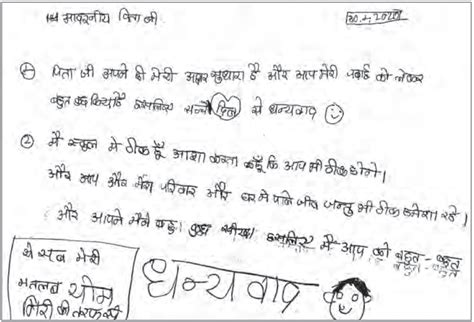 आदरनीय पिता जी
① पिता जी आपने ही मेरी आदत सुधारा है और आप मेरी पढाई को लेकर
बहुत कुछ किया है इसलिए सच्चे दिल से धन्यवाद
② मै स्कूल मे ठीक हूँ आशा करता हूँ कि आप भी ठीक होगे।
और आप और मेरा परिवार और घर मे पाले जीव जन्तु भी ठीक हमेशा रहे।
और आपने मैने बहुत कुछ सीखा इसलिए मै आप को बहुत - बहुत
बहुत - बहुत
धन्यवाद
ये सब मेरी
मतलब योम
गिरी की तरफ से